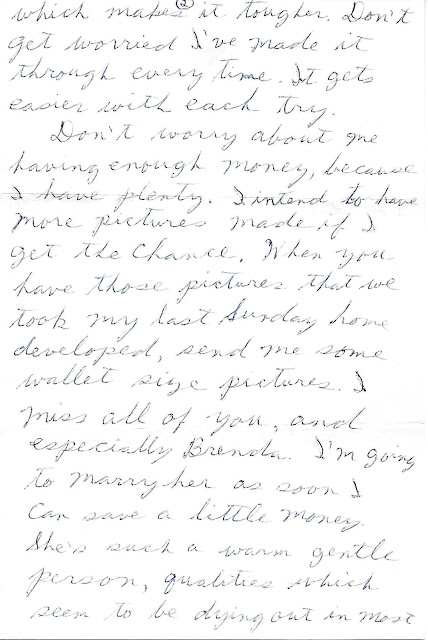 which makes it tougher. Don't
②
get worried I've made it
through every time. It gets
easier with each try.
Don't worry about me
having enough money, because
I have plenty. I intend to have
more pictures made if I
get the chance. When you
have those pictures that we
took my last Sunday home
developed, send me some
wallet size pictures. I
miss all of you, and
especially Brenda. I'm going
to marry her as soon I
can save a little money.
She's such a warm gentle
person, qualities which
seem to be dying out in most